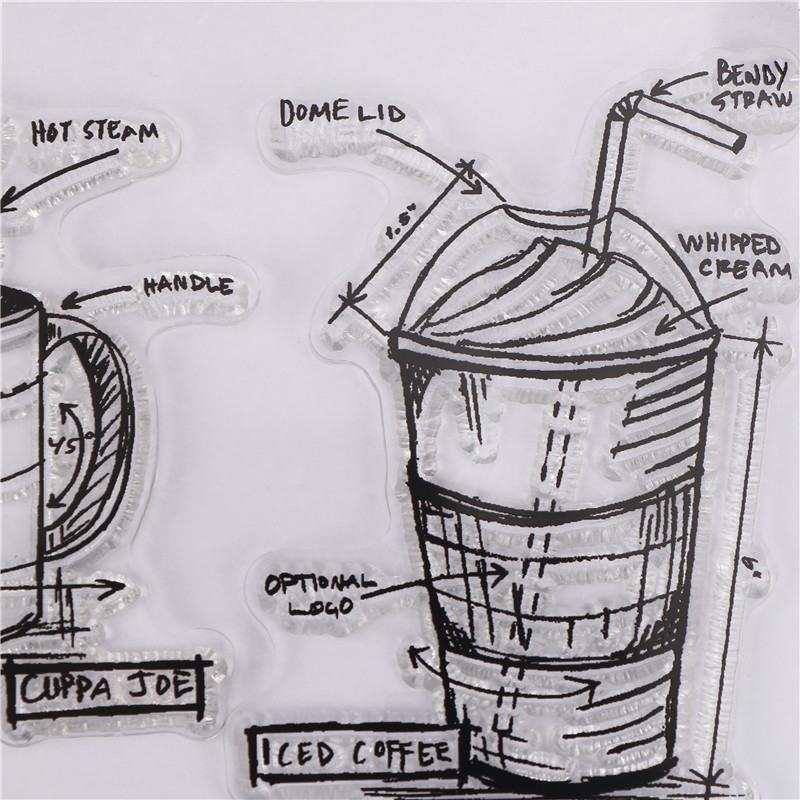 HOT STEAM
HANDLE
45°
CUPPA JOE
DOME LID
BENDY
STRAW
1.5"
WHIPPED
CREAM
OPTIONAL
LOGO
ICED COFFEE